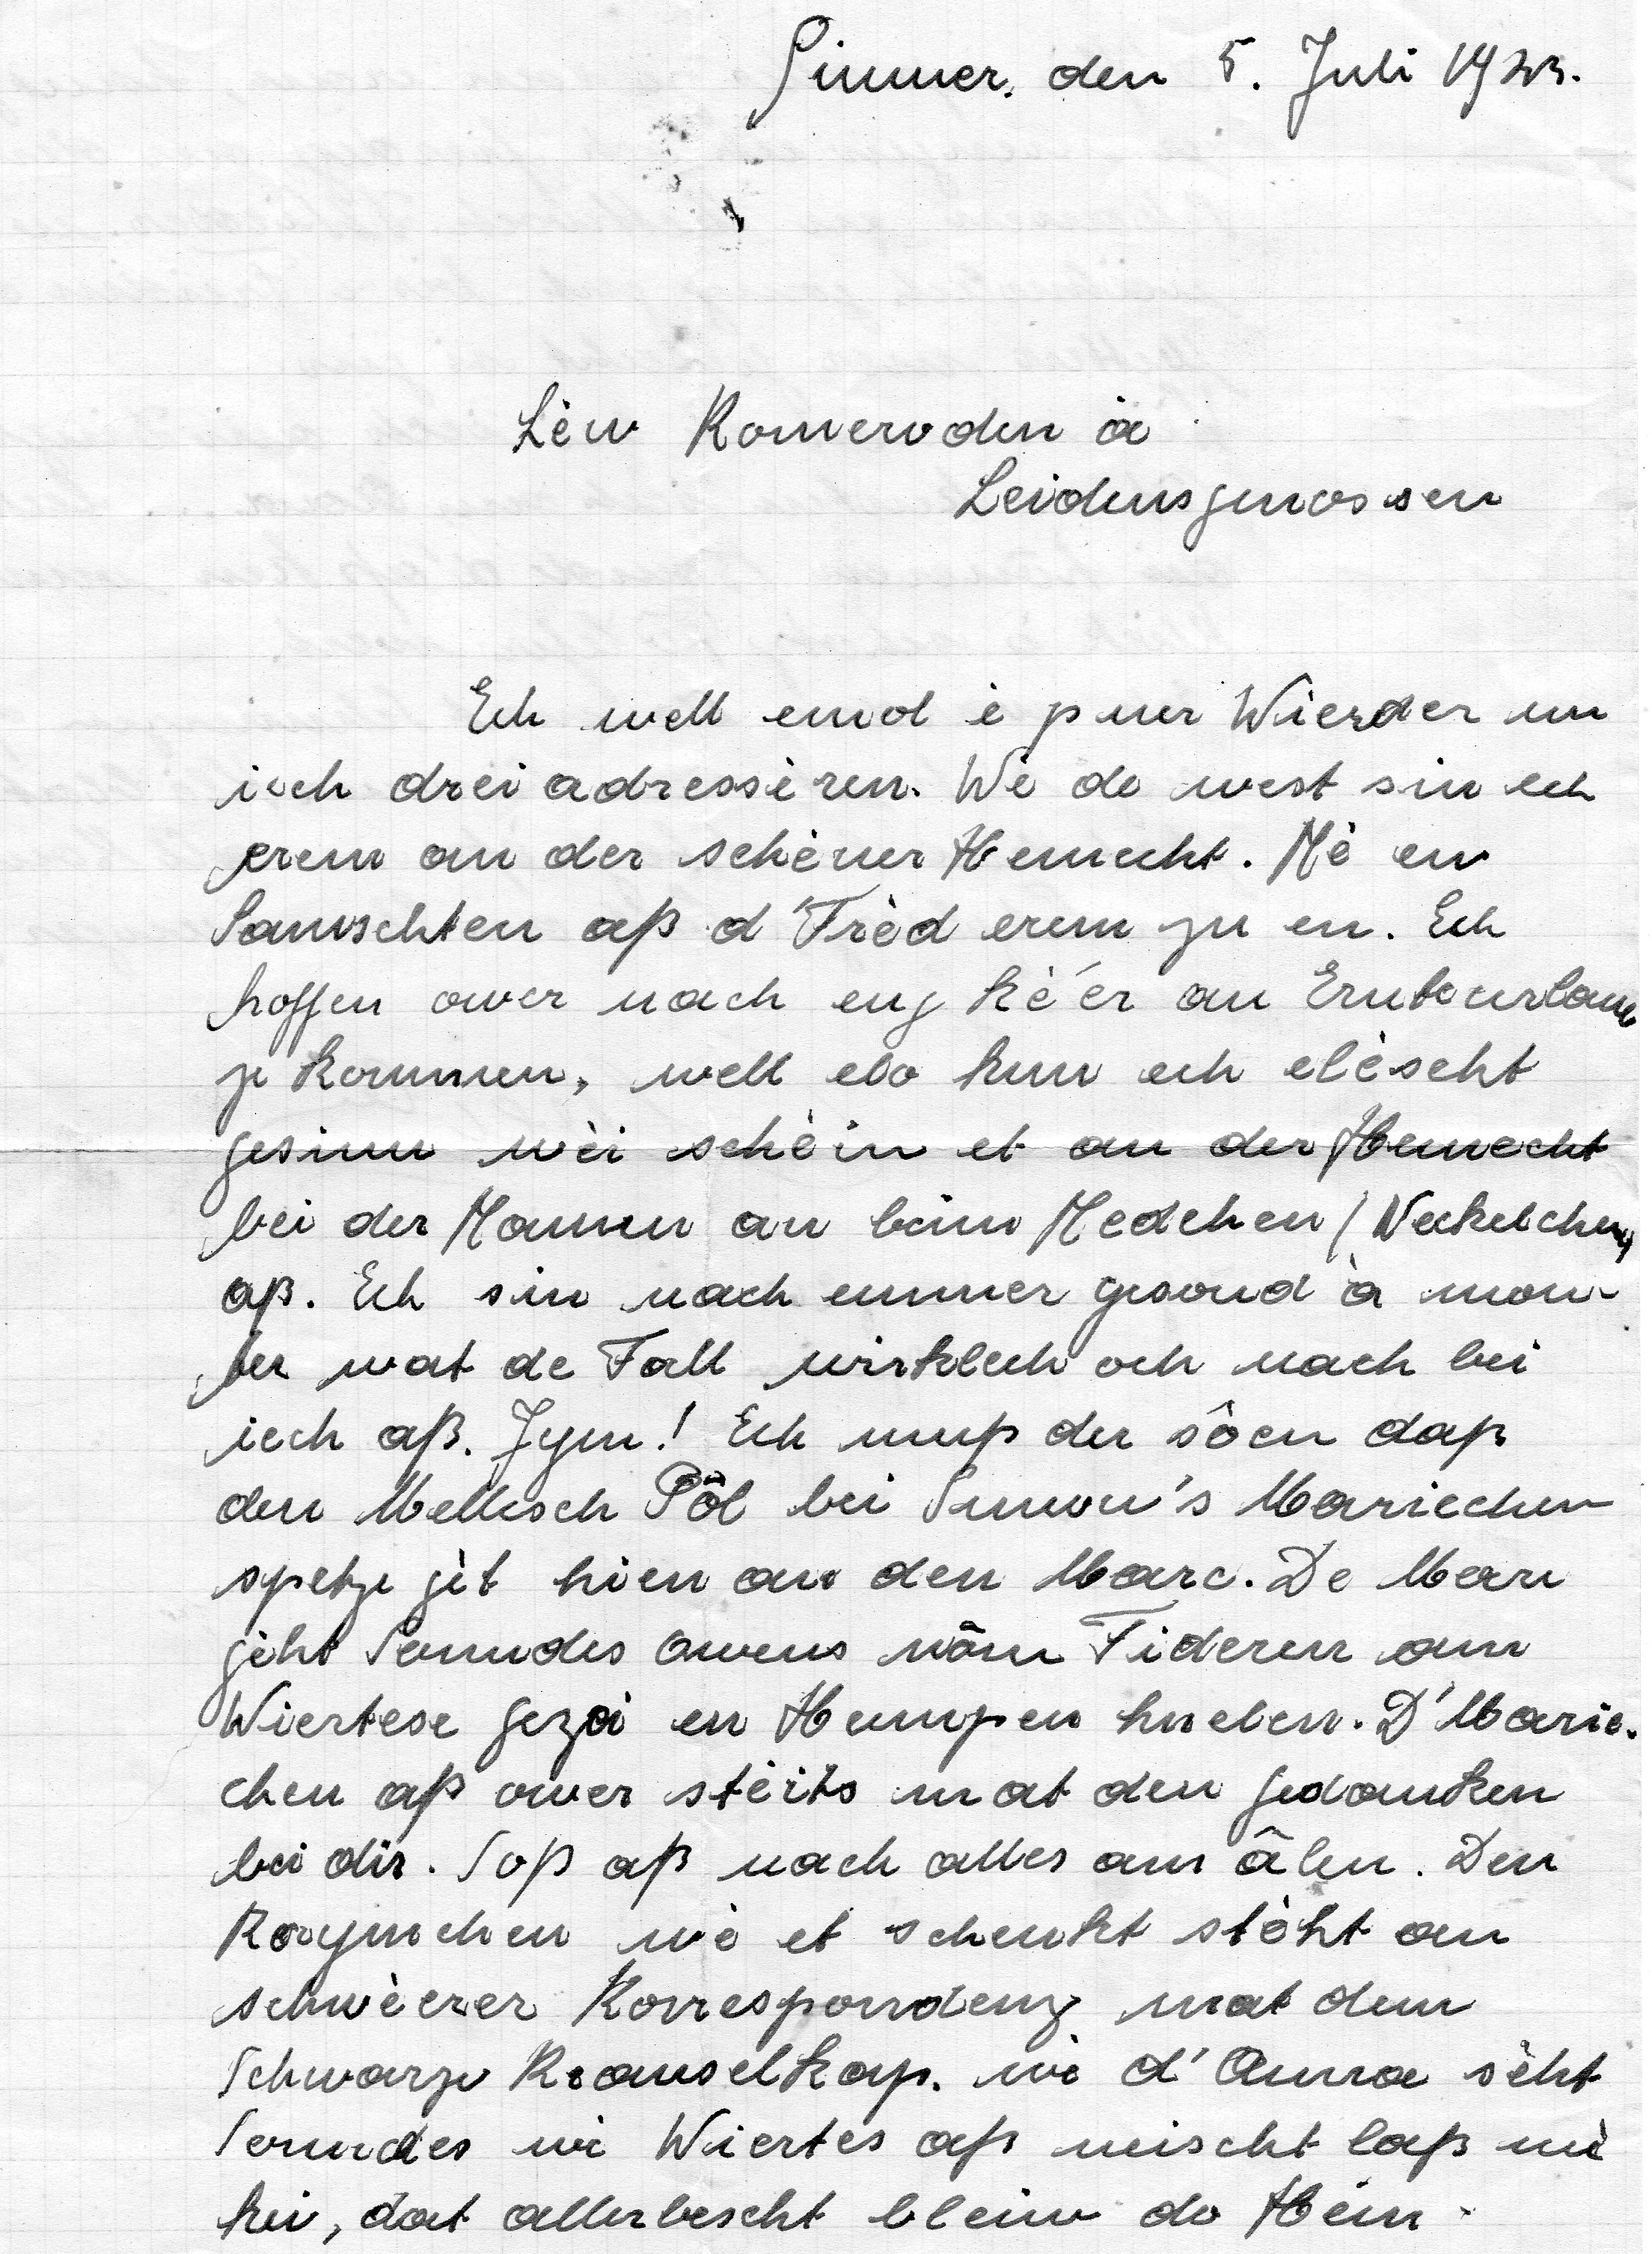 Simmer, den 5. Juli 1943.
Lèw Komeroden à
Leidensgenossen
Ech well emol è puer Wierder un
iech drei adressèren. Wè do west sin ech
erem an der schèner Hemecht. Mè en
Samschten aß d'Frèd erem zu en. Ech
hoffen ower nach eng kè'er an Ernteurlaub
ze kommen, well elo kun ech elèscht
gesinn wèi schèin et an der Hemecht
bei der Mamm an beim Medchen (Neckelchen)
aß. Ech sin nach emmer gesond à mon-
ter wat de Fall wirklech och nach bei
iech aß. Jym! Ech muß der sôen daß
den Mellesch Pôl bei Simon's Mariechen
spetze gèt hien an den Marc. De Marc
gèht Sonndes Owens vâm Fideren am
Wiertese gezoi en Humpen huelen. D'Marie-
chen aß ower stèits mat den Gedanken
bei dir. Soß aß nach alles am âlen. Den
Raymchen wè et schenkt stèht an
schwèerer Korrespondenz mat dem
Schwarze Krauselkap. wè d'Anna sèht
Sonndes wi Wiertes aß neischt laß wè
hei, dat allerbescht bleiw do Hèm.